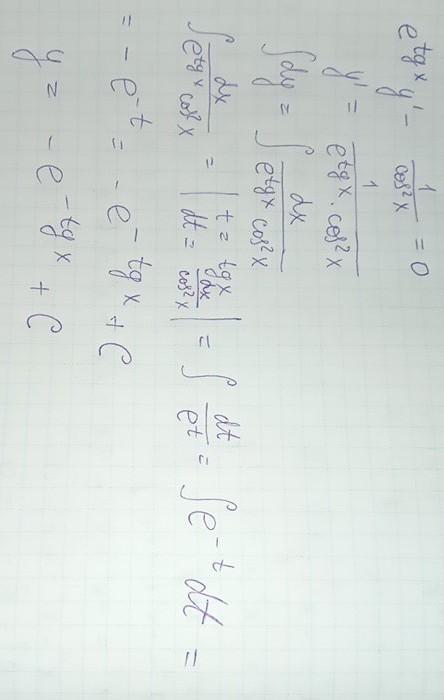 e^{tg x} y' - \frac{1}{cos^2 x} = 0
y' = \frac{1}{e^{tg x} \cdot cos^2 x}
\int dy = \int \frac{dx}{e^{tg x} cos^2 x}
\int \frac{dx}{e^{tg x} cos^2 x} = | t = tg x dt = \frac{dx}{cos^2 x} | = \int \frac{dt}{e^t} = \int e^{-t} dt =
= - e^{-t} = - e^{-tg x} + C
y = - e^{-tg x} + C